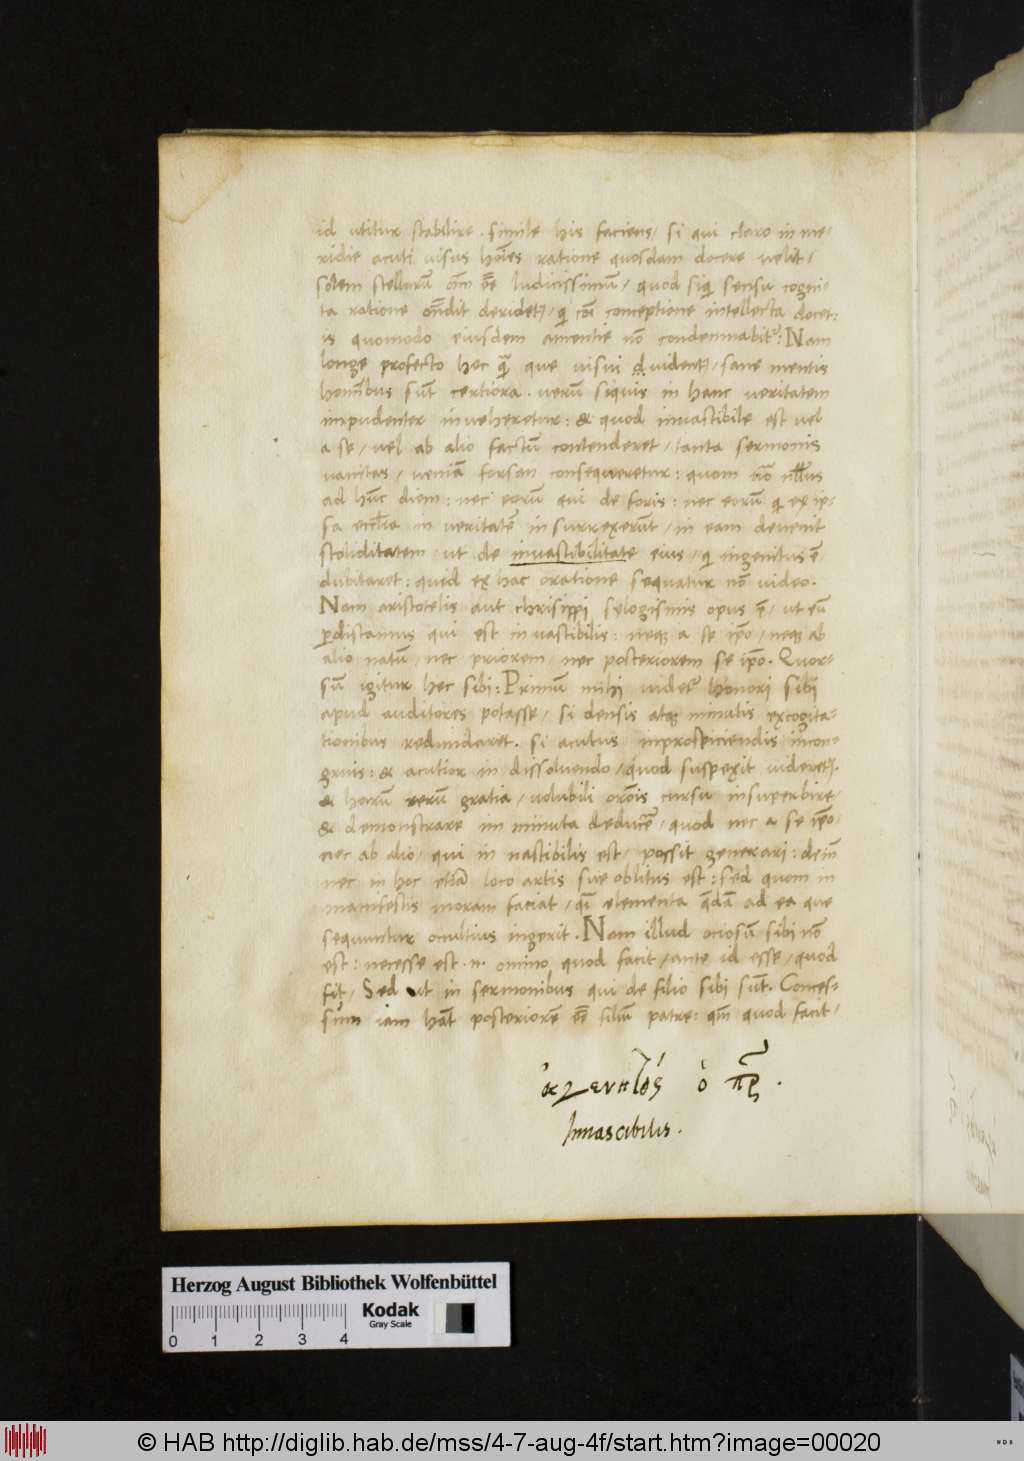 id utitur stabilire. simile his faciens, si qui claro in me-
ridie acuti uisus hoīes ratione quosdam docere uelit,
solem stellarū om̄ eē lucidissimū, quod siq̄ sensu cogni-
ta ratione on̄dit deridet, q̄ cōi conceptione intellecta docet:
is quomodo eiusdem amentie nō condemnabit: Nam
longe profecto hec q̄ que uisui uident, sane mentis
hominibus sūt certiora. uerū siquis in hanc ueritatem
impudenter inueheretur: & quod innastibile est uel
a se, uel ab alio factū contenderet, tanta sermonis
uanitas, ueniā forsan consequeretur: quom nullus
ad hūc diem: nec eorū qui de foris: nec eorū q̄ ex ip-
sa ecclīa in ueritatē insurrexerūt, in eam deuenit
stoliditatem, ut de innastibilitate eius, q̄ ingenitus ē,
dubitaret: quid ex hac oratione sequatur nō uideo.
Nam aristotelis aut chrisippi sylogismis opus ē, ut eū
p̄distamus qui est innastibilis: neq; a se ip̄o, neq; ab
alio natū, nec priorem, nec posteriorem se ip̄o. Quor-
sū igitur hec sibi: Primū mihi uidet honori sibi
apud auditores putasse, si densis atq; minutis excogita-
tionibus redundaret. si acutus inprospiciendis incon-
gruis: & acutior in dissoluendo, quod suspexit uideret.
& harū rerū gratia, uolubili orōnis cursu insuperbire,
& demonstrare in minuta deducēs, quod nec a se ip̄o,
nec ab alio, qui in nastibilis est, possit generari: dein
nec in hoc etiā loco artis sue oblitus est: sed quom in
manifestis moram faciat, elementa q̄dā ad ea que
sequuntur ocultius ingerit. Nam illud ociosū sibi nō
est: necesse est .n. omino, quod facit, ante id esse, quod
fit, Sed ut in sermonibus qui de filio sibi sūt. Conces-
sum iam hāt posteriorē eē filiū patre: qm̄ quod facit,
ἀγεννητὸς ὁ πηρ.
Innascibilis.
Herzog August Bibliothek Wolfenbüttel
Kodak
Gray Scale
0 1 2 3 4
© HAB http://diglib.hab.de/mss/4-7-aug-4f/start.htm?image=00020